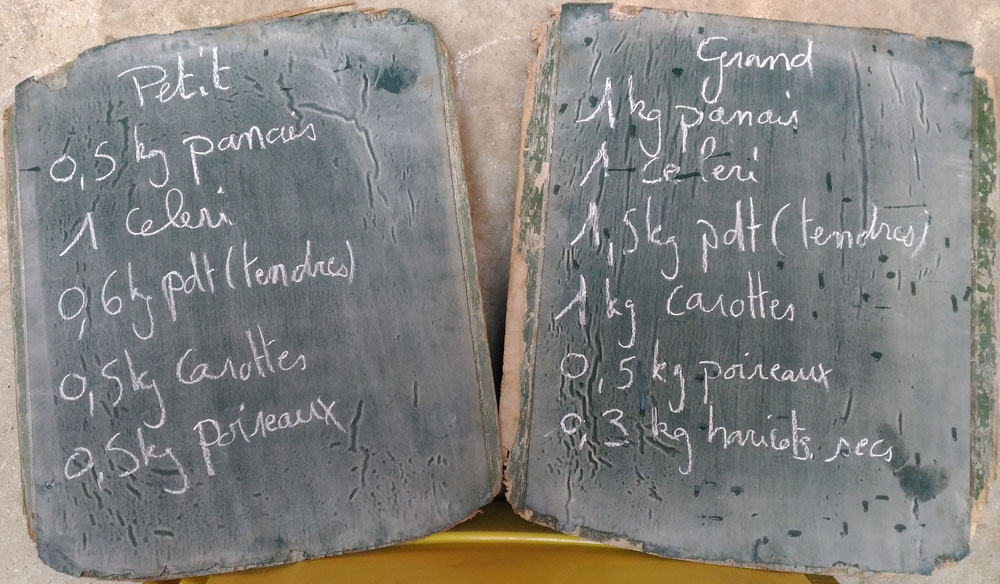 Petit
0,5 kg panais
1 celeri
0,6 kg pdt (tendres)
0,5 kg Carottes
0,5 kg poireaux
Grand
1 kg panais
1 celeri
1,5 kg pdt (tendres)
1 kg Carottes
0,5 kg poireaux
0,3 kg haricots secs